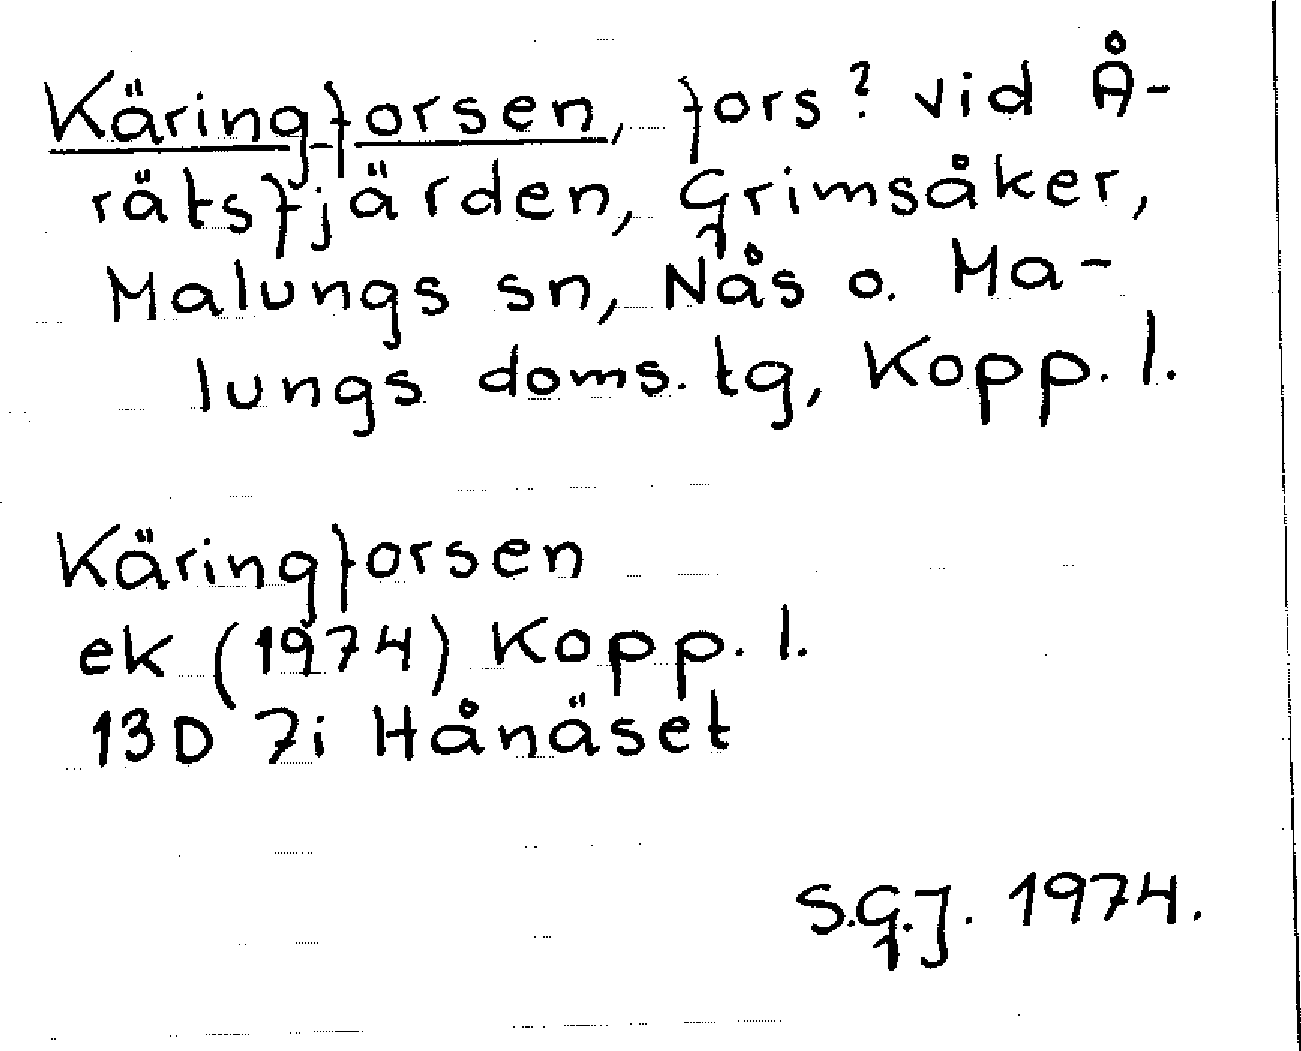 Käringforsen, fors? vid Å-
rätsfjärden, Grimsåker,
Malungs sn, Nås o. Ma-
lungs doms. tg, Kopp. l.
Käringforsen
ek (1974) Kopp. l.
13D 7i Hånäset
S.G.J. 1974.